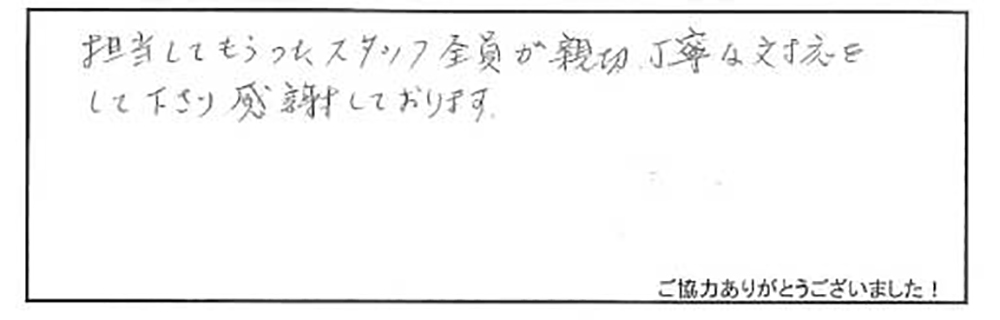 担当してもらった、スタッフ全員が親切、丁寧な対応を
して下さり感謝しております。
ご協力ありがとうございました！